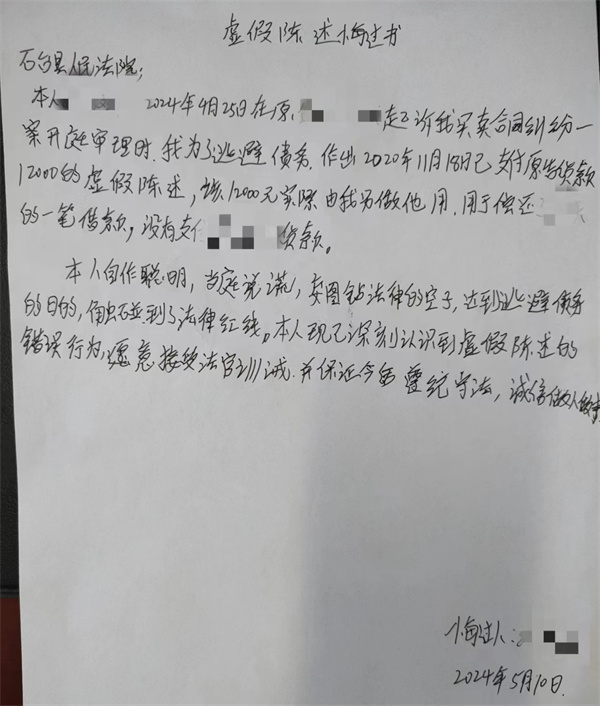 虚假陈述悔过书
石台县人民法院：
本人 2024年4月25日在原 起诉我买卖合同纠纷一
案开庭审理时，我为了逃避债务，作出2020年11月18日已支付原告货款
12000的虚假陈述，该12000元实际由我另做他用，用于偿还
的一笔借款，没有支付 货款。
本人自作聪明，当庭说谎，妄图钻法律的空子，达到逃避债务
的目的，触碰到了法律红线。本人现已深刻认识到虚假陈述的
错误行为，愿意接受法官训诫，并保证今后 遵纪守法，诚信做人做事
悔过人：
2024年5月10日.